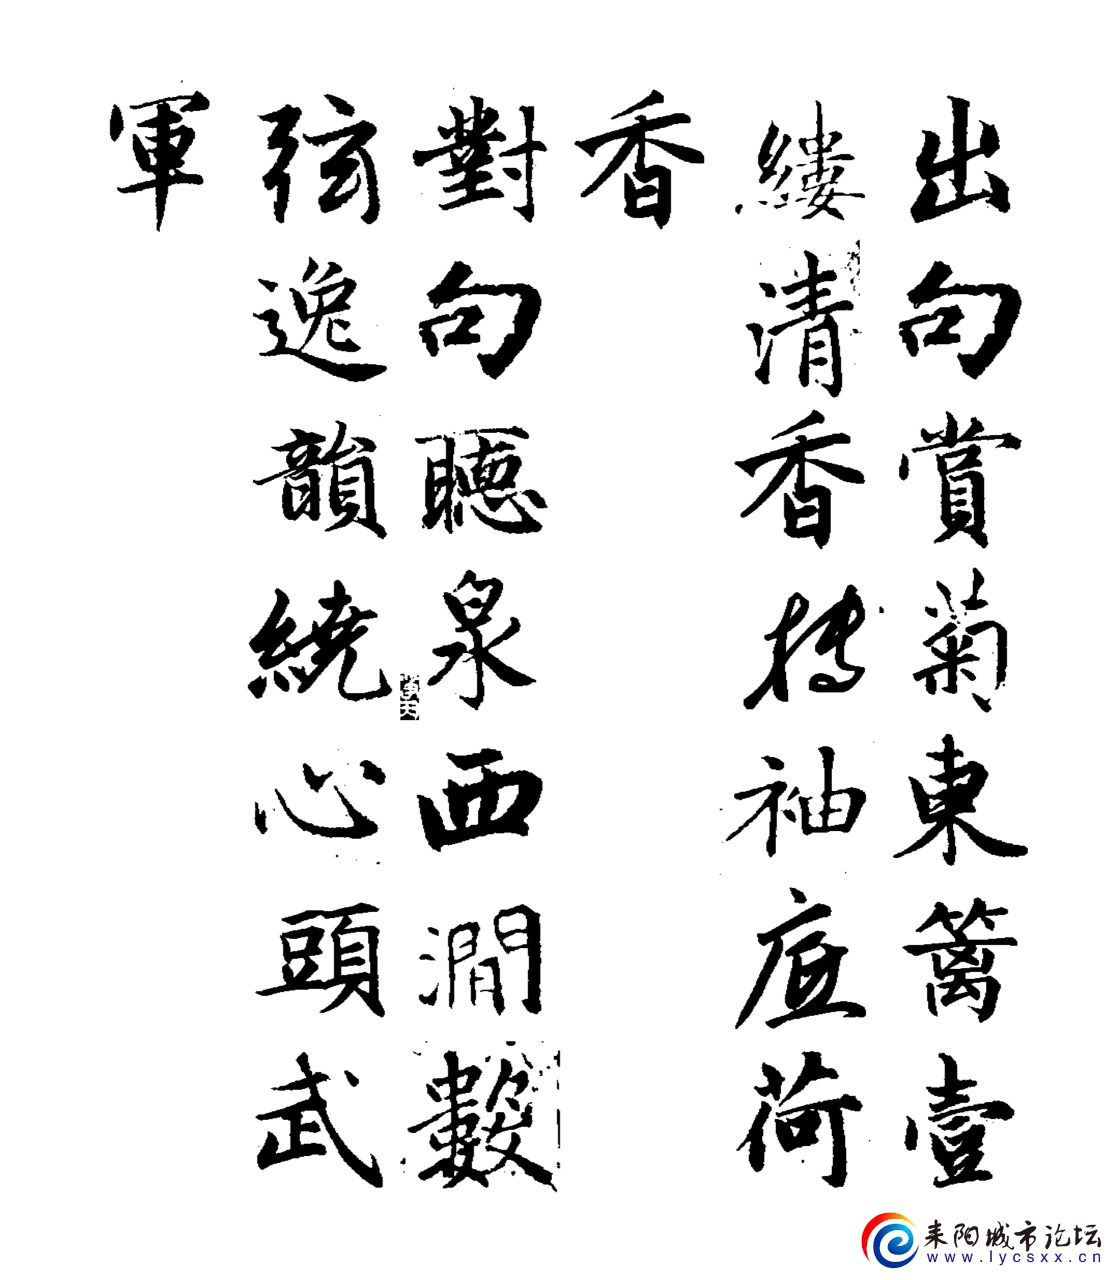 出句賞菊東籬壹
縷清香搏袖底荷
香
對句聽泉西澗數
弦逸韻繞心頭武
軍
耒阳城市论坛
www.lycsxx.cn